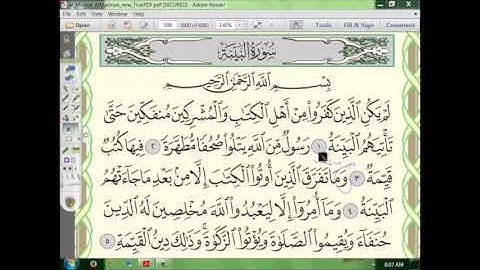 Mushaf_AlMadinah_new_TruePDF.pdf [SECURED] - Adobe Reader
Tools
Fill & Sign
Comment
سُورَةُ البَيِّنَةِ
بِسْمِ اللَّهِ الرَّحْمَٰنِ الرَّحِيمِ
لَمْ يَكُنِ الَّذِينَ كَفَرُوا مِنْ أَهْلِ الْكِتَابِ وَالْمُشْرِكِينَ مُنفَكِّينَ حَتَّىٰ
تَأْتِيَهُمُ الْبَيِّنَةُ ١ رَسُولٌ مِّنَ اللَّهِ يَتْلُوا صُحُفًا مُّطَهَّرَةً ٢ فِيهَا كُتُبٌ
قَيِّمَةٌ ٣ وَمَا تَفَرَّقَ الَّذِينَ أُوتُوا الْكِتَابَ إِلَّا مِن بَعْدِ مَا جَاءَتْهُمُ
الْبَيِّنَةُ ٤ وَمَا أُمِرُوا إِلَّا لِيَعْبُدُوا اللَّهَ مُخْلِصِينَ لَهُ الدِّينَ
حُنَفَاءَ وَيُقِيمُوا الصَّلَوٰةَ وَيُؤْتُوا الزَّكَوٰةَ ۚ وَذَٰلِكَ دِينُ الْقَيِّمَةِ ٥
8:07 AM